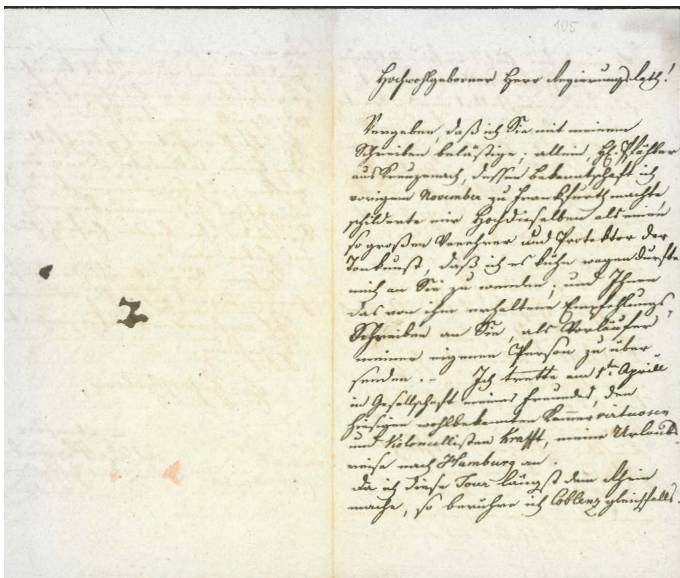 105
Hochwohlgeborner Herr Regierungs Rath!
Vergeben, daß ich Sie mit meinem
Schreiben belästige; allein, H. Pfähler
aus Kreuzenach, dessen Bekantschaft ich
vorigen November zu Frankfurth machte,
schilderte mir Hochdieselben als einen
so großen Verehrer und Protektor der
Tonkunst, daß ich es kühn wagen durfte
mich an Sie zu wenden; und Ihnen
das von ihm erhaltene Empfehlungs-
Schreiben an Sie, als Vorläufer
meiner eigenen Person zu über-
senden. – Ich trette am 1ten Aprill
in Gesellschaft meines Freundes, des
hiesigen wohlbekannten Kammervirtuosen
und Violoncellisten Krafft, meine Urlaubs-
reise nach Hamburg an.
Da ich diese Tour längst dem Rhein
mache, so berühre ich Coblenz gleichfalls.